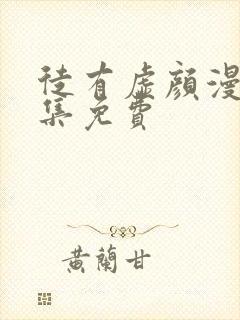 徒有虛顏漫
集免費
黃蘭甘